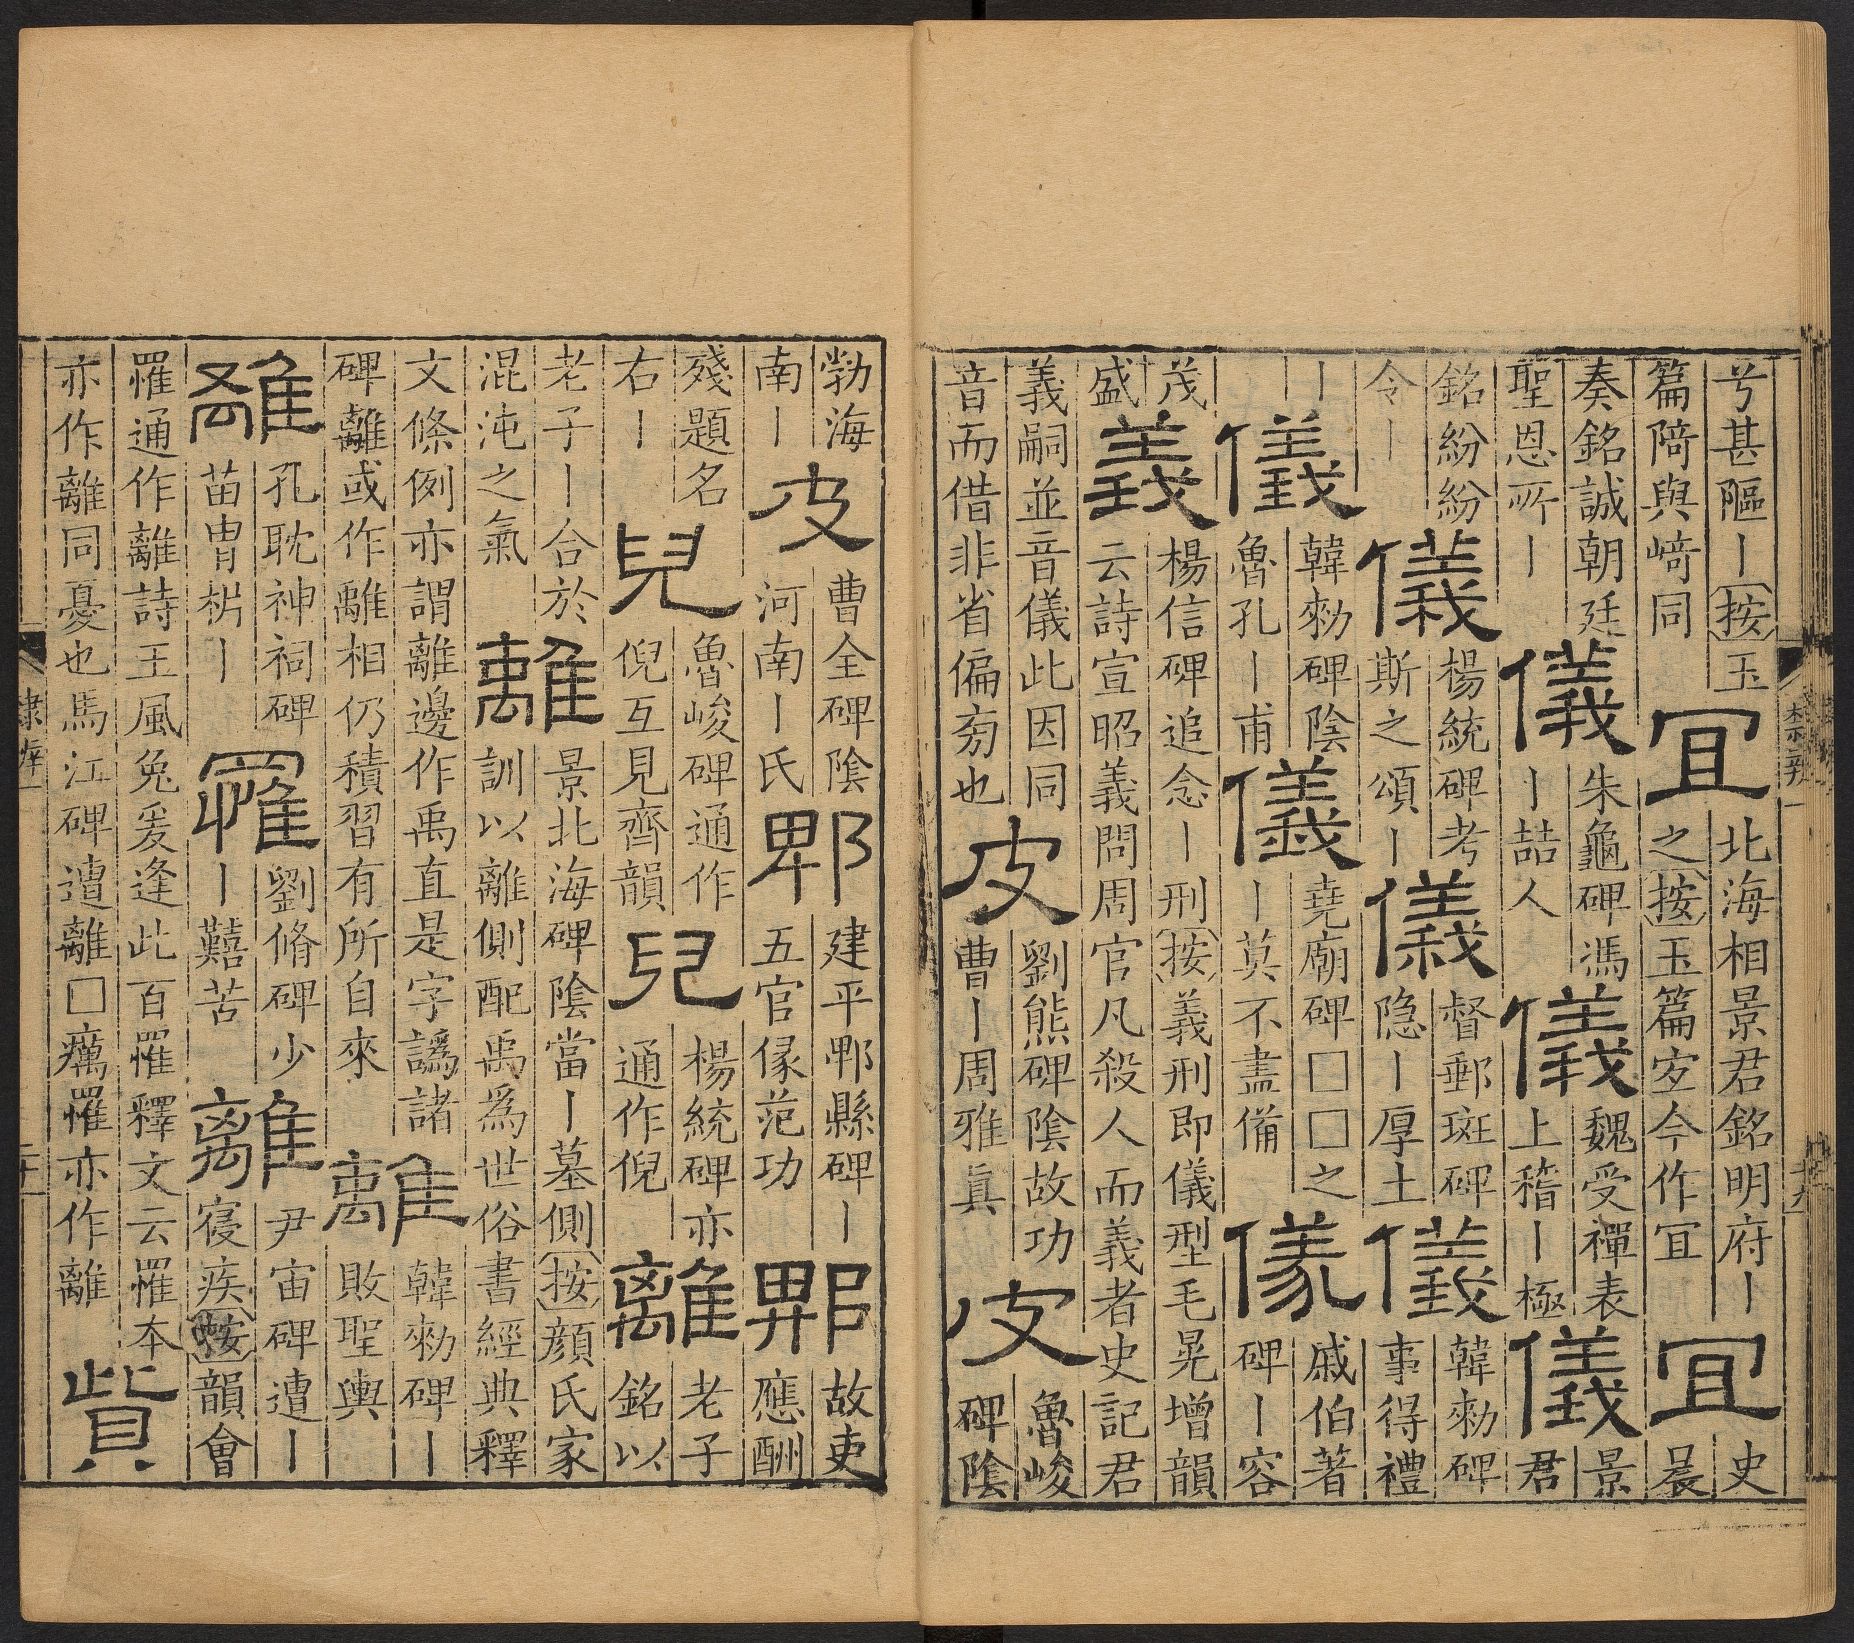 兮甚𨻶丨按玉
篇陭與崎同
宜
北海相景君銘明府丨
之按玉篇㝖今作宜
宜
史
晨
奏銘誠朝廷
聖恩所丨
儀
朱龜碑馮
丨喆人
儀
魏受禪表
上稽丨極
儀
景
君
銘紛紛
令丨
儀
楊統碑考
斯之頌丨
儀
督郵斑碑
隐丨厚土
儀
韓勑碑
事得禮
丨
儀
韓勑碑陰
魯孔丨甫
儀
堯廟碑□□之
丨莫不盡備
儀
戚伯著
碑丨容
茂
盛
義
楊信碑追念丨刑按義刑即儀型毛晃增韻
云詩宣昭義問周官凡殺人而義者史記君
義嗣並音儀此因同
音而借非省偏旁也
皮
劉熊碑陰故功
曹丨周雅真
皮
魯峻
碑陰
勃海
南丨
皮
曹全碑陰
河南丨氏
郫
建平郫縣碑丨
五官掾范功
郫
故吏
應酬
殘題名
右丨
兒
魯峻碑通作
倪互見齊韻
兒
楊統碑亦
通作倪
離
老子
銘以
老子丨合於
混沌之氣
離
景北海碑陰當丨墓側按顏氏家
訓以離側配禹為世俗書經典釋
文條例亦謂離邊作禹直是字譌諸
碑離或作離相仍積習有所自來
離
韓勑碑丨
敗聖輿
離
孔耽神祠碑
苗胄枬丨
罹
劉脩碑少
丨囏苦
離
尹宙碑遭丨
寑疾按韻會
罹通作離詩王風兔爰逢此百罹釋文云罹本
亦作離同憂也馬江碑遭離□癘罹亦作離
貲